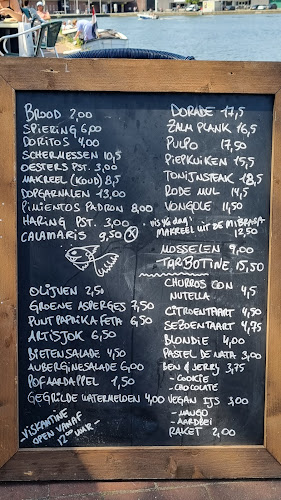 BROOD 2,00
SPIERING 6,00
DORITOS 4,00
SCHERMESSEN 10,5
OESTERS PST. 3,00
MAKREEL (KOUD) 8,5
DOPGARNALEN 13,00
PIMIENTOS PADRON 8,00
HARING PST. 3,00
CALAMARIS 9,50 X
OLIJVEN 2,50
GROENE ASPERGES 7,50
PUNTPAPRIKA FETA 6,50
ARTISJOK 6,50
BIETENSALADE 4,50
AUBERGINESALADE 6,00
POFAARDAPPEL 1,50
GEGRILDE WATERMELOEN 4,00
-VISKANTINE
OPEN VANAF
12:00 UUR-
DORADE 17,5
ZALM PLANK 16,5
PULPO 17,50
PIEPKUIKEN 15,5
TONIJNSTEAK 18,5
RODE MUL 14,5
VONGOLE 11,50
VIS V/D DAG!
MAKREEL UIT DE MIBRASA
12,50
MOSSELEN 9,00
TARBOTINE 15,50
CHURROS CON
NUTELLA 4,5
CITROENTAART 4,50
SEIZOENTAART 4,75
BLONDIE 4,00
PASTEL DE NATA 3,00
BEN & JERRY 3,75
- COOKIE
- CHOCOLATE
VEGAN IJS 3,00
- MANGO
- AARDBEI
RAKET 2,00